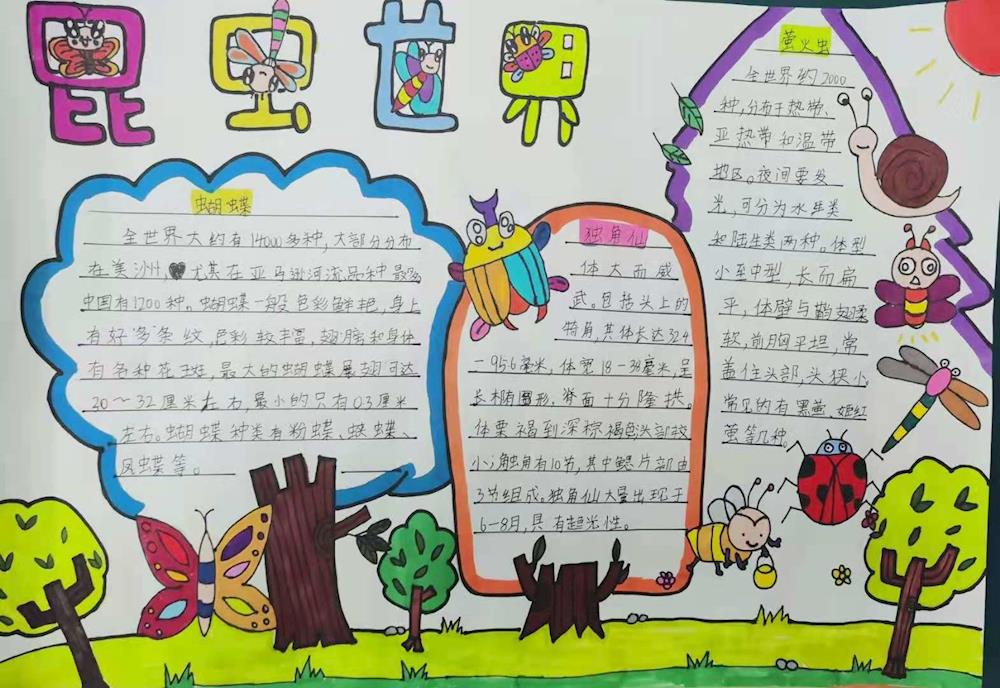 昆虫世界
蝴蝶
全世界大约有14000多种,大部分分布
在美洲,尤其在亚马逊河流品种最多
中国有1200种。蝴蝶一般色彩鲜艳,身上
有好多条纹,色彩较丰富,翅膀和身体
有各种花斑,最大的蝴蝶展翅可达
20～32厘米左右,最小的只有0.3厘米
左右。蝴蝶种类有粉蝶、蛱蝶、
凤蝶等。
独角仙
体大而威
武。包括头上的
犄角,其体长达324
-956毫米,体宽18-38毫米,呈
长椭圆形,脊面十分隆拱。
体栗褐到深棕褐色,头部较
小;触角有10节,其中鳃片部由
3节组成。独角仙大量出现于
6-8月,具有趋光性。
萤火虫
全世界约2000
种,分布于热带、
亚热带和温带
地区。夜间要发
光,可分为水生类
和陆生类两种。体型
小至中型,长而扁
平,体壁与鞘翅柔
软,前胸平坦,常
盖住头部,头狭小
常见的有黑黄、姬红
萤等几种。